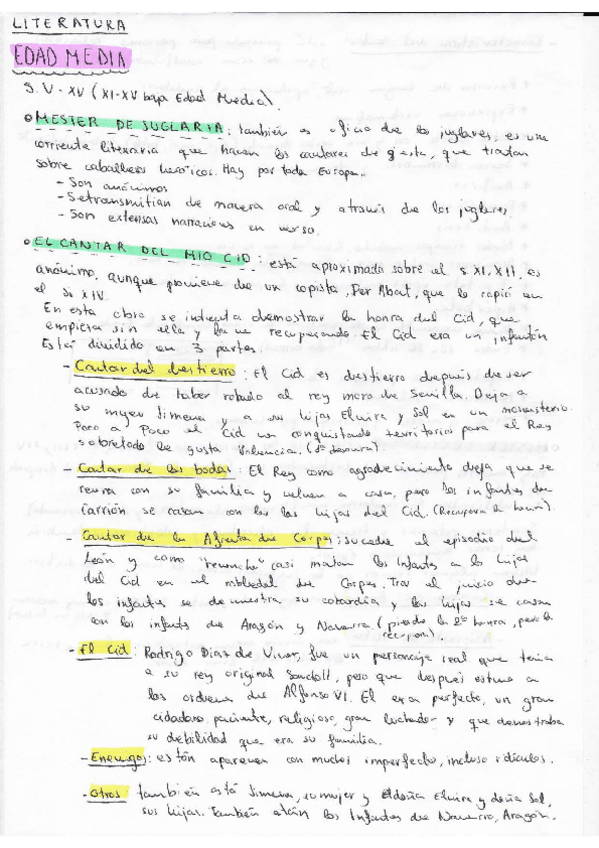 LITERATURA
EDAD MEDIA
S. V - XV (XI-XV baja Edad Media).
MESTER DE JUGLARIA: también es oficio de los juglares, es una
corriente literaria que hacen los cantares de gesta, que tratan
sobre caballeros heroicos. Hay por toda Europa.
- Son anónimos
- Se transmitían de manera oral y a través de los juglares.
- Son extensas narraciones en verso.
EL CANTAR DEL MIO CID: está aproximado sobre el s. XI, XII, es
anónimo, aunque proviene de un copista, Per Abat, que lo copió en
el s. XIV.
En esta obra se intenta demostrar la honra del Cid, que
empieza sin ella y la va recuperando. El Cid era un infanzón
Está dividido en 3 partes.
- Cantar del destierro: El Cid es destierro después de ser
acusado de haber robado al rey moro de Sevilla. Deja a
su mujer Jimena y a su hijas Elvira y Sol en un monasterio.
Poco a Poco el Cid va conquistando territorios para el Rey
sobretodo le gusta Valencia. (
- Cantar de las bodas: El Rey como agradecimiento deja que se
reuna con su familia y vuelvan a casa, pero los infantes de
Carrión se casan con las hijas del Cid. (Recupera la honra).
- Cantar de la Afrenta de Corpes: sucede el episodio del
león y como "revancha" casi matan los Infantes a las hijas
del Cid en el robledal de Corpes. Tras el juicio de
los infantes se demuestra su cobardía y las hijas se casan
con los infants de Aragón y Navarra (pierde la 2º honra, pero la
recupera).
- El Cid: Rodrigo Díaz de Vivar, fue un personaje real que tenía
a su rey original Sancho II, pero que después estuvo a
las ordenes de Alfonso VI. El era perfecto, un gran
ciudadano, paciente, religioso, gran luchador y que demostraba
su debilidad que era su familia.
- Enemigos: estón aparecen con muchos imperfecto, incluso ridículos.
- Otros también está Jimena, su mujer y doña Elvira y doña Sol,
sus hijas. También están los Infantes de Navarra, Aragón.